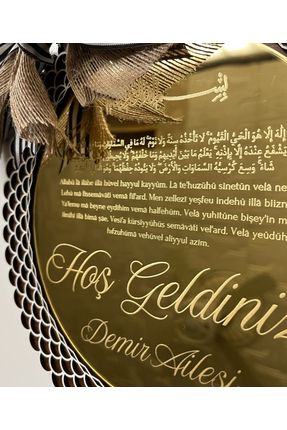 بِسْمِ
إِلٰهَ إِلَّا هُوَ الْحَيُّ الْقَيُّومُ لَا تَأْخُذُهُ سِنَةٌ وَلَا نَوْمٌ لَهُ مَا فِي السَّمَاوَاتِ
يَشْفَعُ عِنْدَهُ إِلَّا بِإِذْنِهِ يَعْلَمُ مَا بَيْنَ أَيْدِيهِمْ وَمَا خَلْفَهُمْ وَلَا
شَاءَ وَسِعَ كُرْسِيُّهُ السَّمَاوَاتِ وَالْأَرْضَ وَلَا يَئُودُهُ حِفْظُهُمَا
Allahü lâ ilâhe illâ hüvel hayyul kayyûm. Lâ te'huzühû sinetün velâ ne
Lehû mâ fissemâvâti vemâ fil'ard. Men zellezî yeşfeu indehû illâ biizni
Ya'lemu mâ beyne eydîhim vemâ halfehüm. Velâ yuhîtûne bişey'in m
ilmihî illâ bimâ şâe. Vesi'a kürsiyyühüs semâvâti vel'ard. Velâ yeûdüh
hıfzuhümâ vehüvel aliyyul azîm.
Hoş Geldiniz
Demir Ailesi